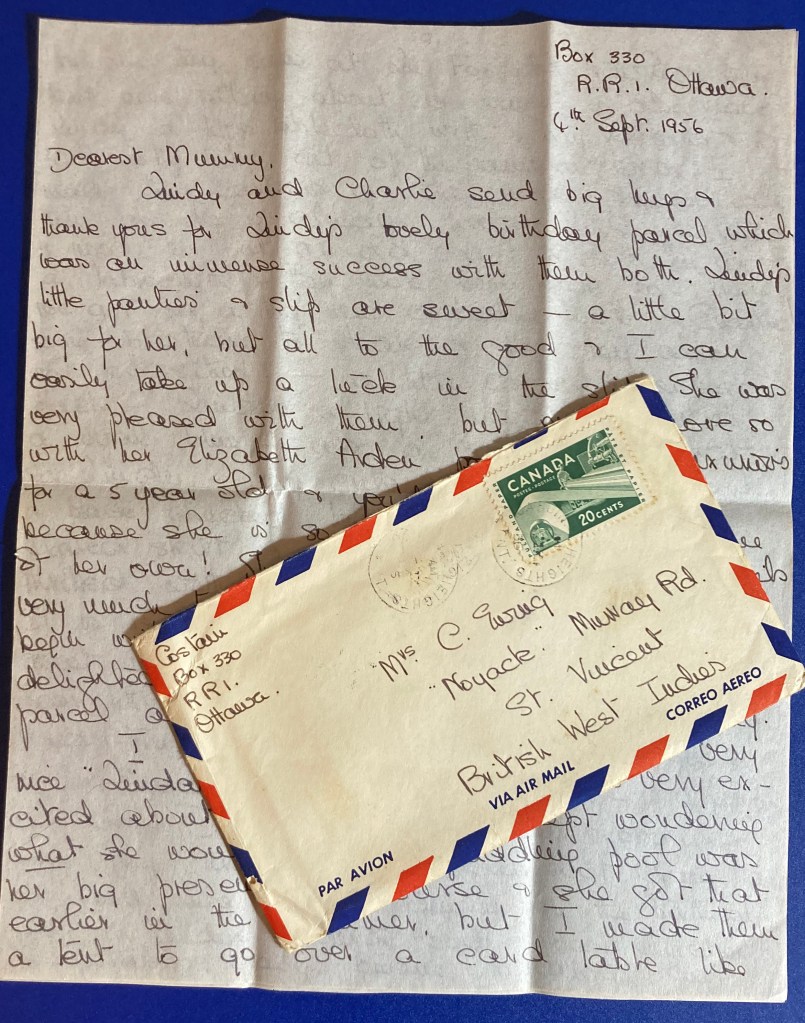 Box 330
R.R.1. Ottawa.
4th Sept. 1956
Dearest Mummy,
Lindy and Charlie send big hugs &
thank yous for Lindy's lovely birthday parcel which
was an immense success with them both. Lindy's
little panties & slip are sweet — a little bit
big for her, but all to the good & I can
easily take up a tuck in the slip. She was
very pleased with them, but ore so
with her Elizabeth Arden
for a 5 year old & you'
because she is so
of her own!
very much
begin
delighte
parcel
I
nice "Linda very
very ex-
cited about pt wondering
what she wou addling pool was
her big presen & she got that
earlier in the mer, but I made them
a tent to go over a card table like
CANADA
POSTES·POSTAGE
20 CENTS
Costain
Box 330
RR1.
Ottawa.
Mrs C. Ewing
"Noyack" Murray Rd.
St. Vincent
British West Indies
PAR AVION
VIA AIR MAIL
CORREO AEREO